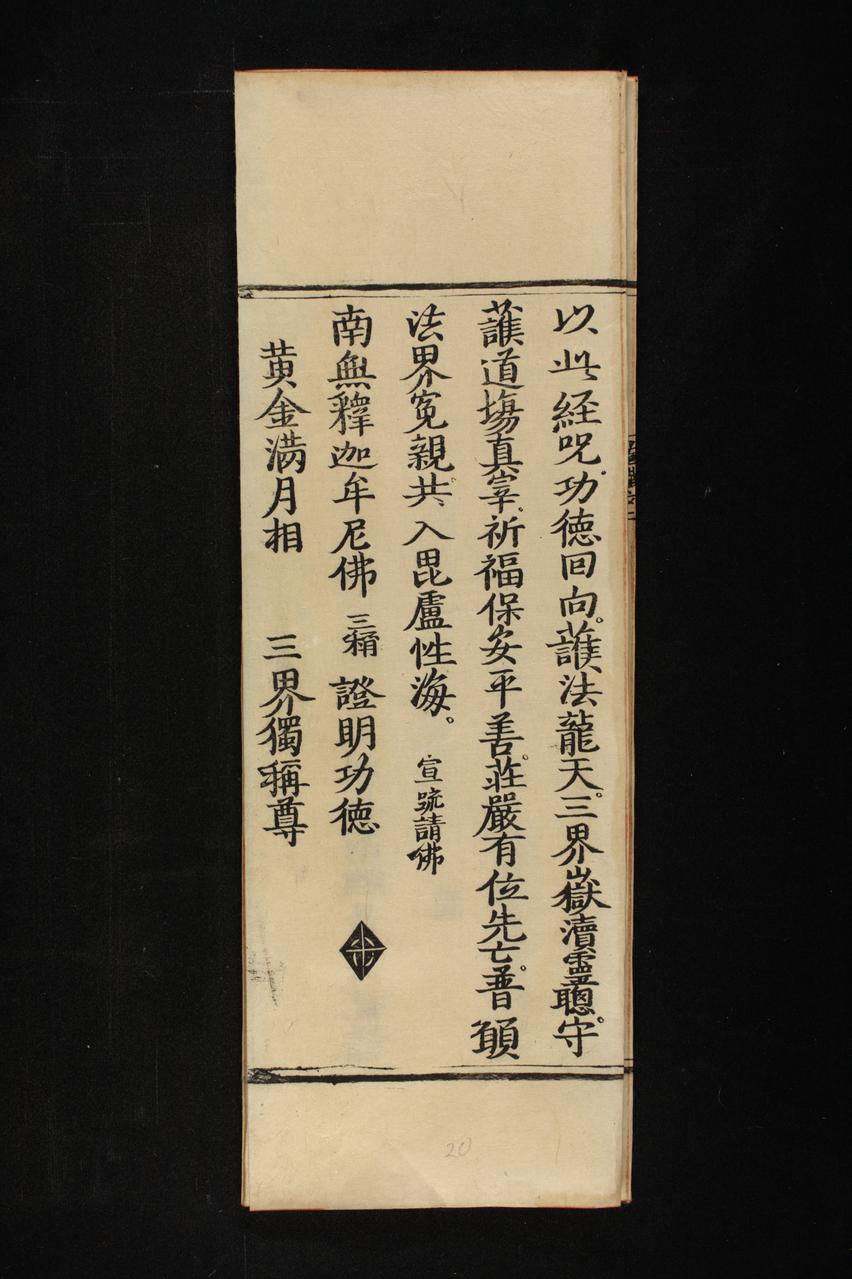 以此経呪。功德回向。護法龍天。三界嶽瀆靈聰。守
護道場真宰。祈福保安平善。莊嚴有位先亡。普願
法界寃親。共入毘盧性海。 宣疏請佛
南無釋迦牟尼佛 三稱 證明功德
黄金滿月相 三界獨稱尊
20